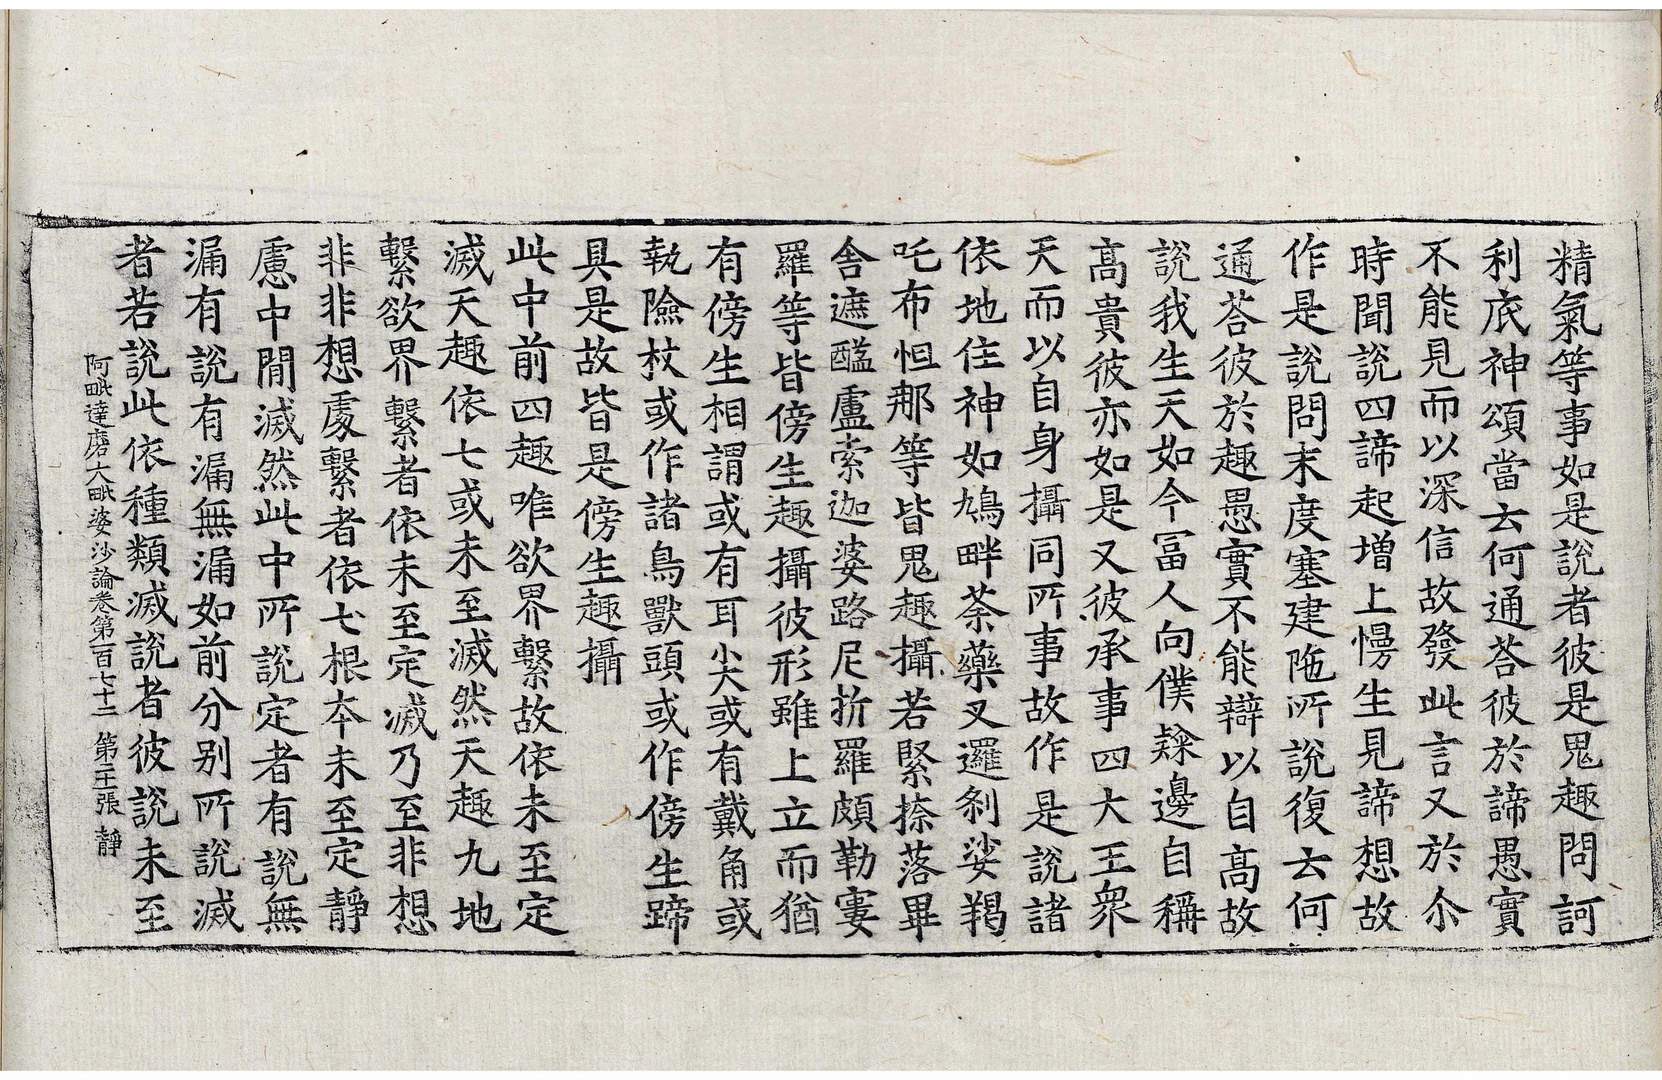 精氣等事如是說者彼是鬼趣問訶
利底神頌當云何通荅彼於諦愚實
不能見而以深信故發此言又於尒
時聞說四諦起增上慢生見諦想故
作是說問末度塞建陁所說復云何
通荅彼於趣愚實不能辯以自高故
說我生天如今冨人向僕𨽻邊自稱
高貴彼亦如是又彼承事四大王衆
天而以自身攝同所事故作是說諸
依地住神如鳩畔荼藥叉邏剎娑羯
吒布怛那等皆鬼趣攝若緊捺落畢
舍遮醯盧索迦婆路尼折羅頗勒窶
羅等皆傍生趣攝彼形雖上立而猶
有傍生相謂或有耳尖或有戴角或
執險杖或作諸鳥獸頭或作傍生蹄
具是故皆是傍生趣攝
此中前四趣唯欲界繫故依未至定
滅天趣依七或未至滅然天趣九地
繫欲界繫者依未至定滅乃至非想
非非想處繫者依七根本未至定靜
慮中閒滅然此中所說定者有說無
漏有說有漏無漏如前分别所說滅
者若說此依種類滅說者彼說未至
阿毗達磨大毗婆沙論卷第一百七十二 第二十張 靜